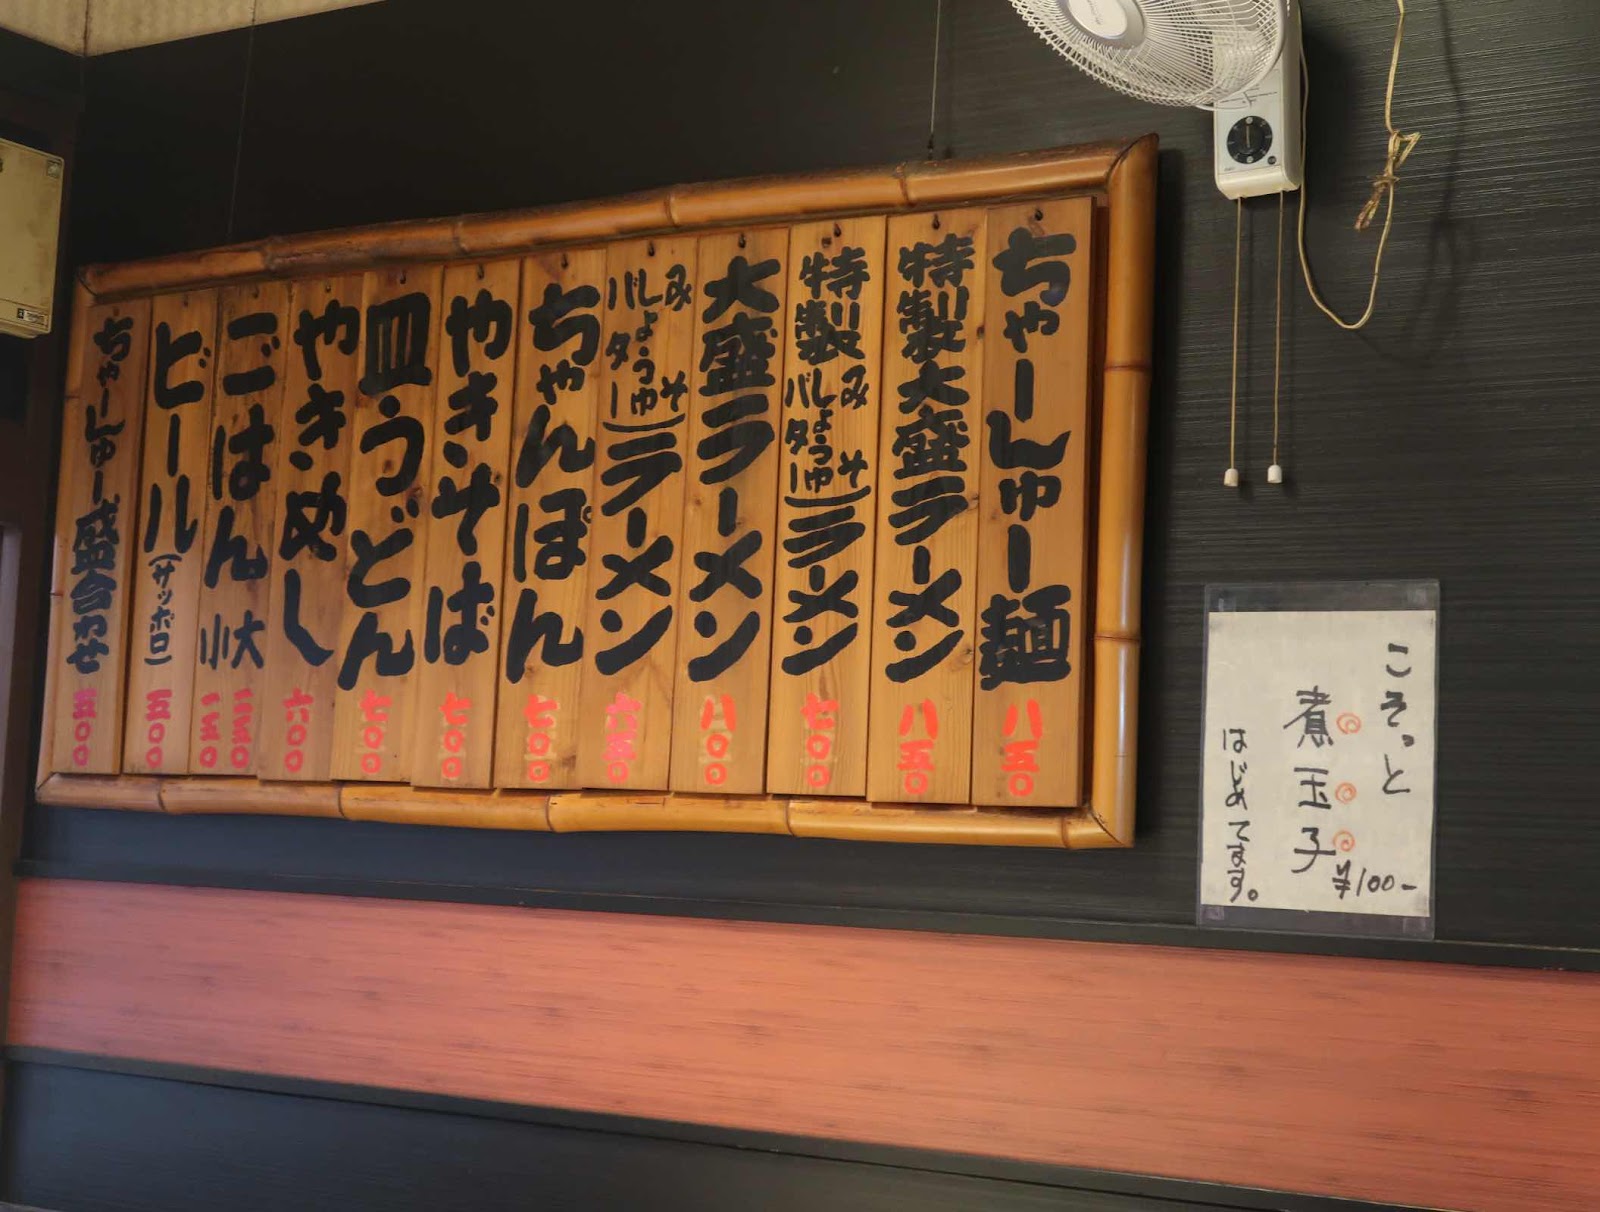 ちゃーしゅー麺 八五〇
特製大盛ラーメン 八五〇
特製(みそ しょうゆ バター)ラーメン 七〇〇
大盛ラーメン 八〇〇
(みそ しょうゆ バター)ラーメン 六五〇
ちゃんぽん 七〇〇
やきそば 七〇〇
皿うどん 七〇〇
やきめし 六〇〇
ごはん 大 二五〇
小 一五〇
ビール(サッポロ) 五〇〇
ちゃーしゅー盛合わせ 五〇〇
こそっと
煮玉子
¥100-
はじめてます。